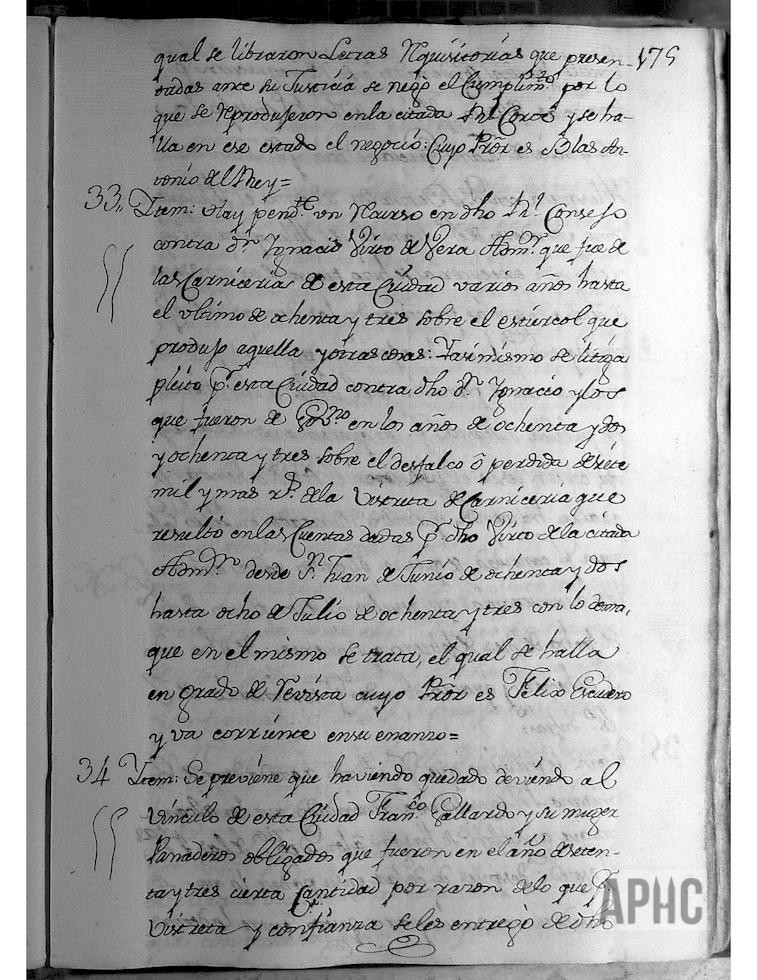 175
qual se libraron Letras Requisitorias que presen-
tadas ante su Justicia se negò el Cumplim.to por lo
que se reprodujeron en la citada Rl. Corte y se ha-
lla en ese estado el negocio: Cuyo Prõr es Blas An-
tonio del Rey=
33,, Ytem: Hay pend.te un Recurso en dho Rl. Consejo
contra dn. Ygnacio Virto de Vera Adm.or que fue de
las Carniceria de esta Ciudad varios años hasta
el ultimo de ochenta y tres sobre el estiercol que
produjo aquella y otras cosas: Y asimismo se litiga
pleito pr. esta Ciudad contra dho dn. Ygnacio y los
que fueron de Govno en los años de ochenta y dos
y ochenta y tres sobre el desfalco ô perdida de siete
mil y mas rs. de la Vistreta de Carniceria que
resultò en las Cuentas dadas pr. dho Virto de la citada
Adm.on desde Sn. Juan de Junio de ochenta y dos
hasta ocho de Julio de ochenta y tres con lo demas,
que en el mismo se trata, el qual se halla
en grado de Revista cuyo Prõr es Felix Escudero
y va corriente en su enanzo=
34 Ytem: Se previene que haviendo quedado deviendo al
Vinculo de esta Ciudad Fran.co Gallardo y su muger
Panaderos obligados que fueron en el año de seten-
ta y tres cierta Cantidad por razon de lo que pr.
Vistreta y confianza se les entregò de dho
APHC